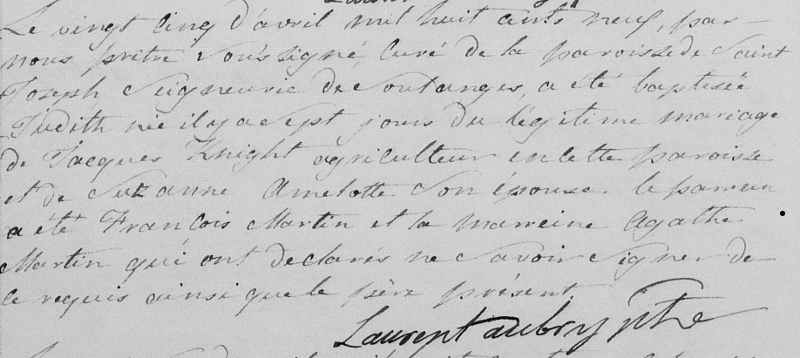 Le vingt Cinq d'avril mil huit cents neuf, par
nous prêtre Soussigné, Curé de la paroisse de Saint
Joseph Seigneurie de Soulanges, a été baptisée
Judith née il y a Sept jours du légitime mariage
de Jacques Knight agriculteur en cette paroisse
et de Suzanne Amelotte Son épouse. le parrain
a été François Martin et la marreine Agathe
Martin qui ont déclarés ne Savoir Signer de
ce requis ainsi que le père présent.
Laurent aubry ptre